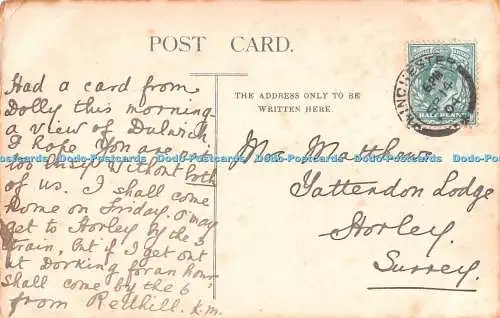 POST CARD.
THE ADDRESS ONLY TO BE
WRITTEN HERE.
HALFPENNY
Had a card from
Dolly this morning
a view of Dulwich
I hope you are not
too lonely without both
of us. I shall come
home on Friday. I may
get to Horley by the 5
train, but if I get out
at Dorking for an hour
shall come by the 6
from Redhill. K.M.
Mrs Matthews
Yattendon Lodge
Horley.
Surrey.
Postcards Postcards Dodo Postcards Dodo Postcards Dodo Postcards